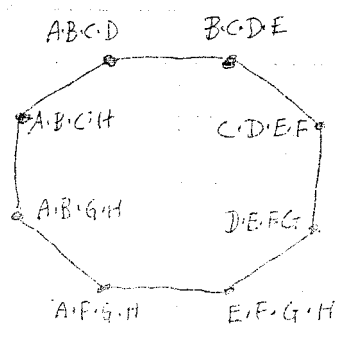 A·B·C·D B·C·D·E
A·B·C·H C·D·E·F
A·B·G·H D·E·F·G
A·F·G·H E·F·G·H